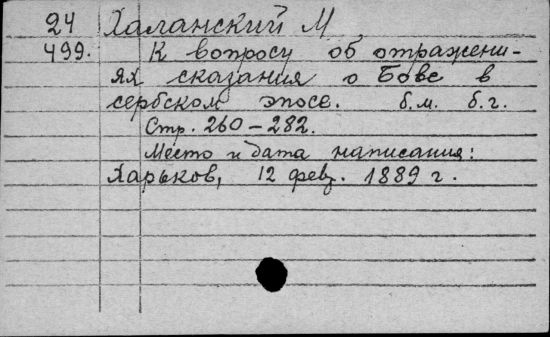 24 Халанский М
499. К вопросу об отражени-
ях сказания о Бове в
сербском эпосе. б.м. б.г.
Стр. 260-282.
Место и дата написания:
Харьков, 12 февр. 1889 г.